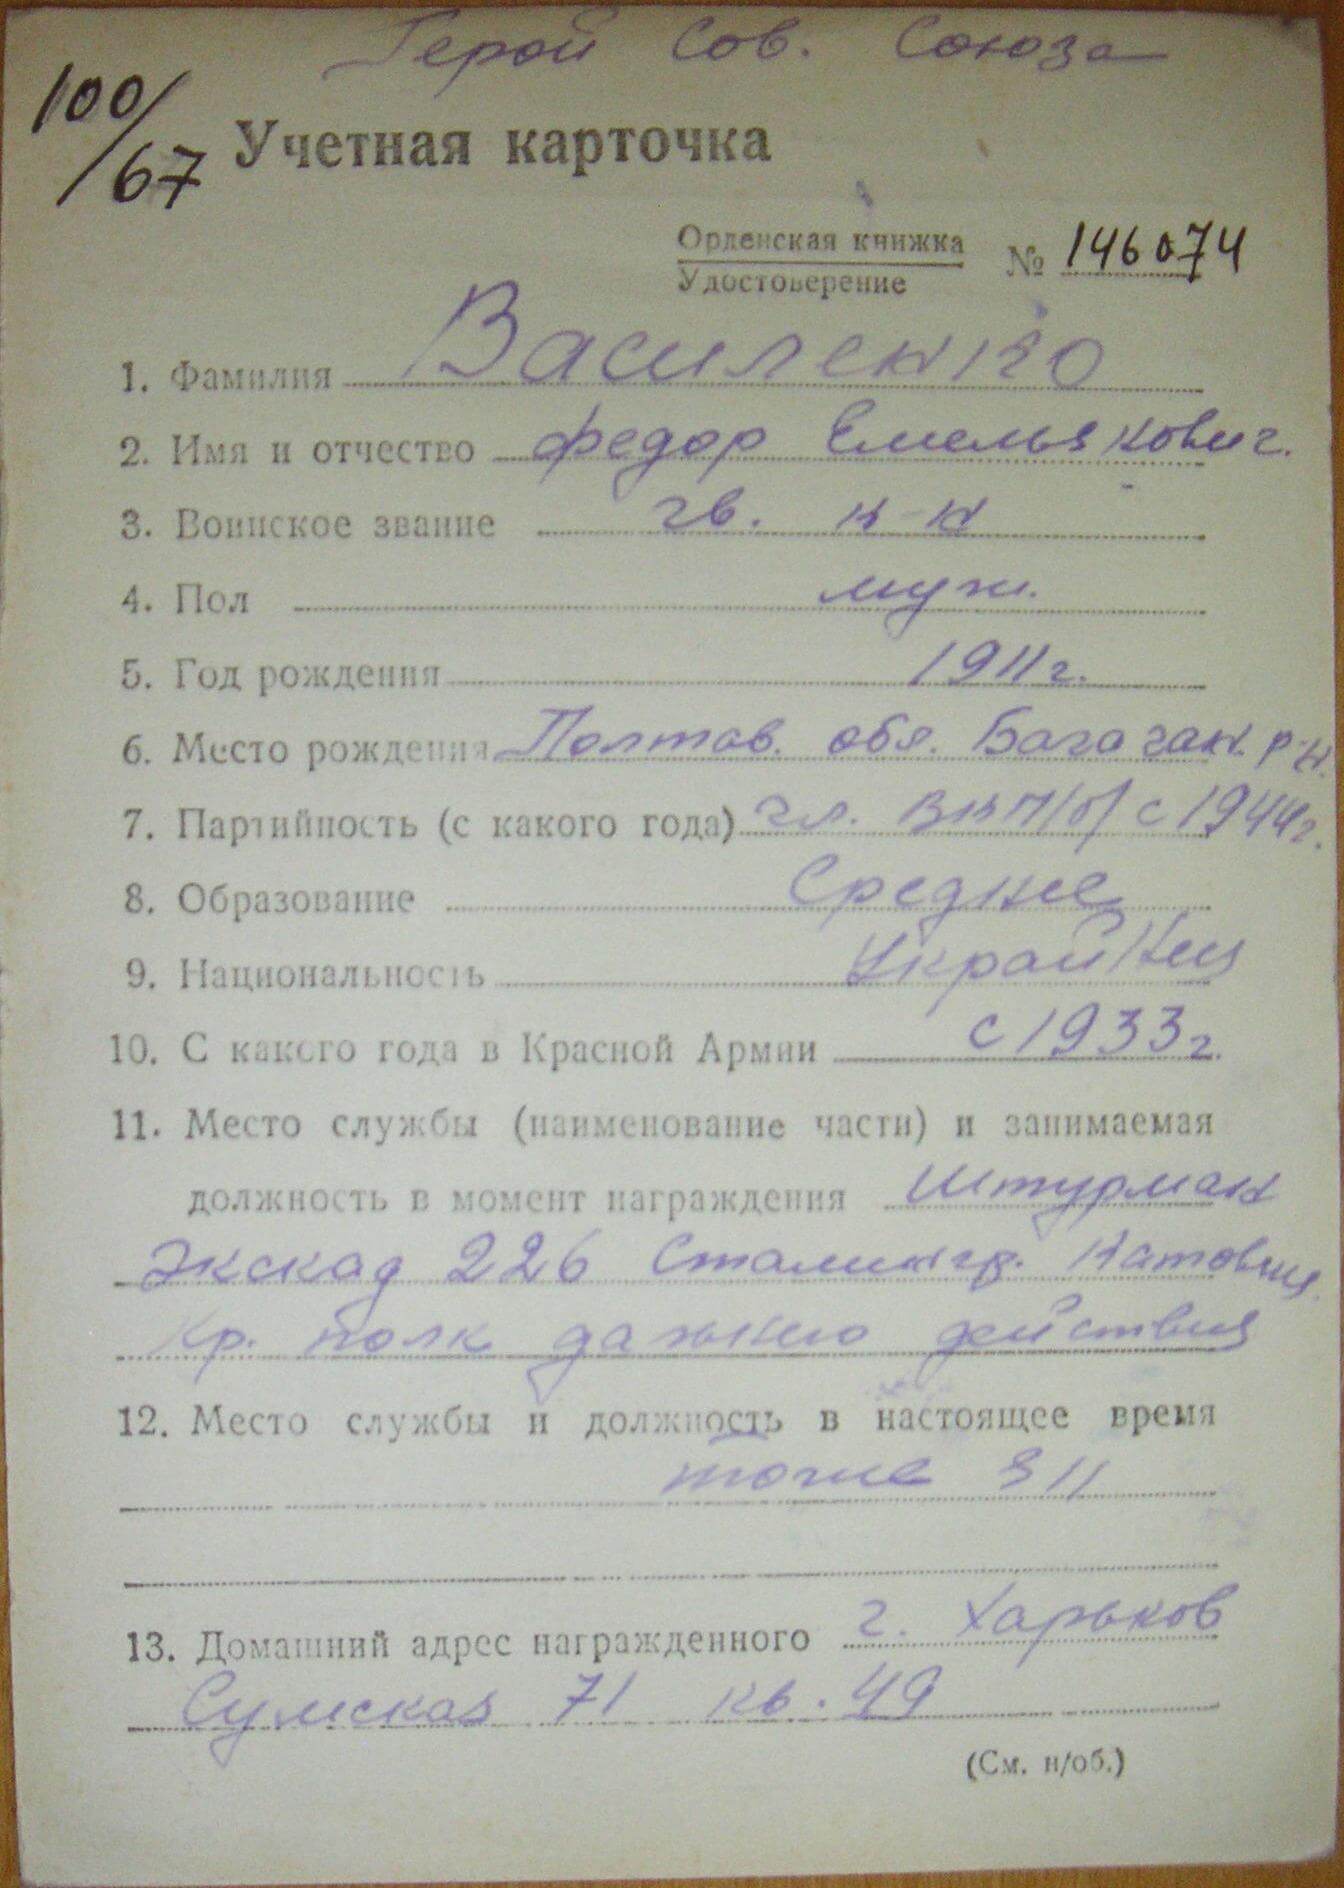 Герой Сов. Союза
100/67
Учетная карточка
Орденская книжка
Удостоверение
№ 146074
1. Фамилия Василенко
2. Имя и отчество Федор Емельянович.
3. Воинское звание гв. к-н
4. Пол муж.
5. Год рождения 1911 г.
6. Место рождения Полтав. обл. Багачан. р-н.
7. Партийность (с какого года) чл. ВКП/б/ с 1944 г.
8. Образование Среднее
9. Национальность Украйнец
10. С какого года в Красной Армии с 1933 г.
11. Место службы (наименование части) и занимаемая
должность в момент награждения Штурман
Экскад 226 Сталингр. Катовиц.
Кр. полк дальнего действия
12. Место службы и должность в настоящее время
тоже 911
13. Домашний адрес награжденного г. Харьков
Сумская 71 кв. 49
(См. н/об.)